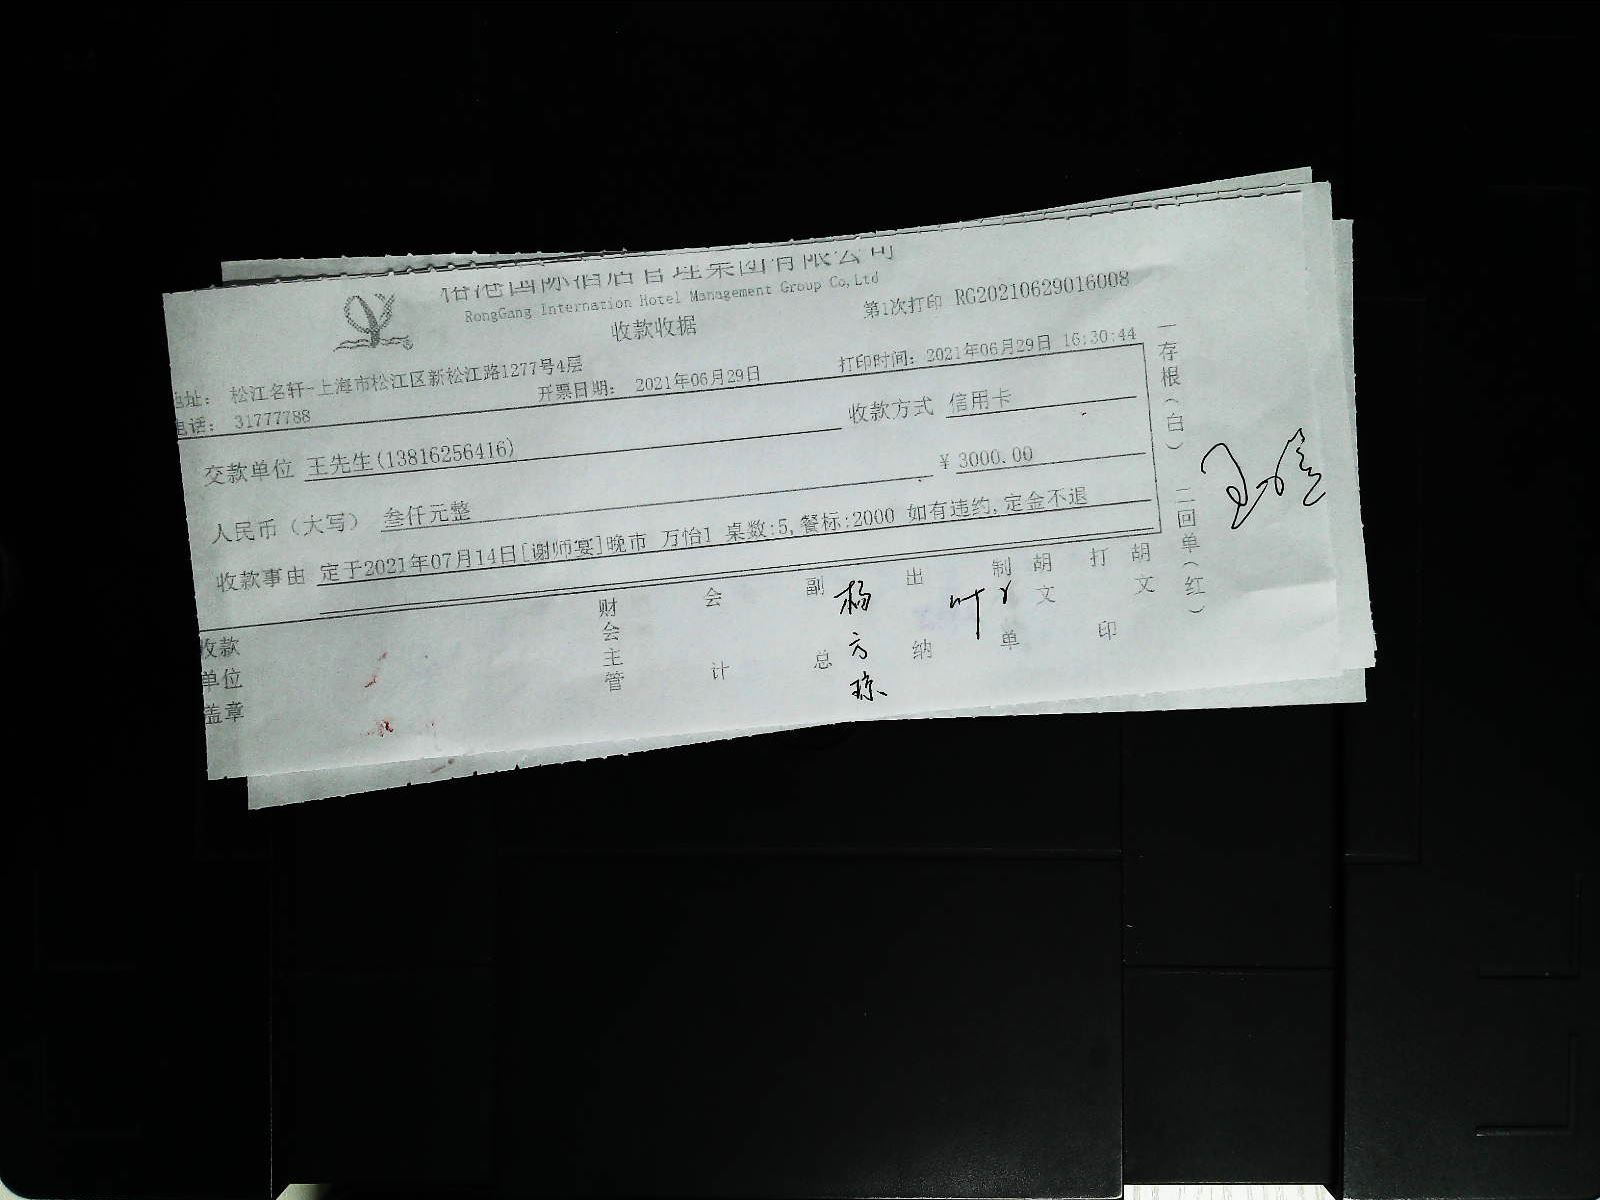 RongGang Internation Hotel Management Group Co,Ltd
收款收据
第1次打印 RG20210629016008
地址： 松江名轩-上海市松江区新松江路1277号4层
电话： 31777788
开票日期： 2021年06月29日
打印时间：2021年06月29日 16:30:44
交款单位 王先生(13816256416)
收款方式 信用卡
人民币（大写） 叁仟元整
¥ 3000.00
收款事由 定于2021年07月14日[谢师宴]晚市 万怡1 桌数:5,餐标:2000 如有违约,定金不退
收款单位盖章
财会主管
会计
副总 杨方琼
出纳 叶
制单 胡文
打印 胡文
一存根（白） 二回单（红）